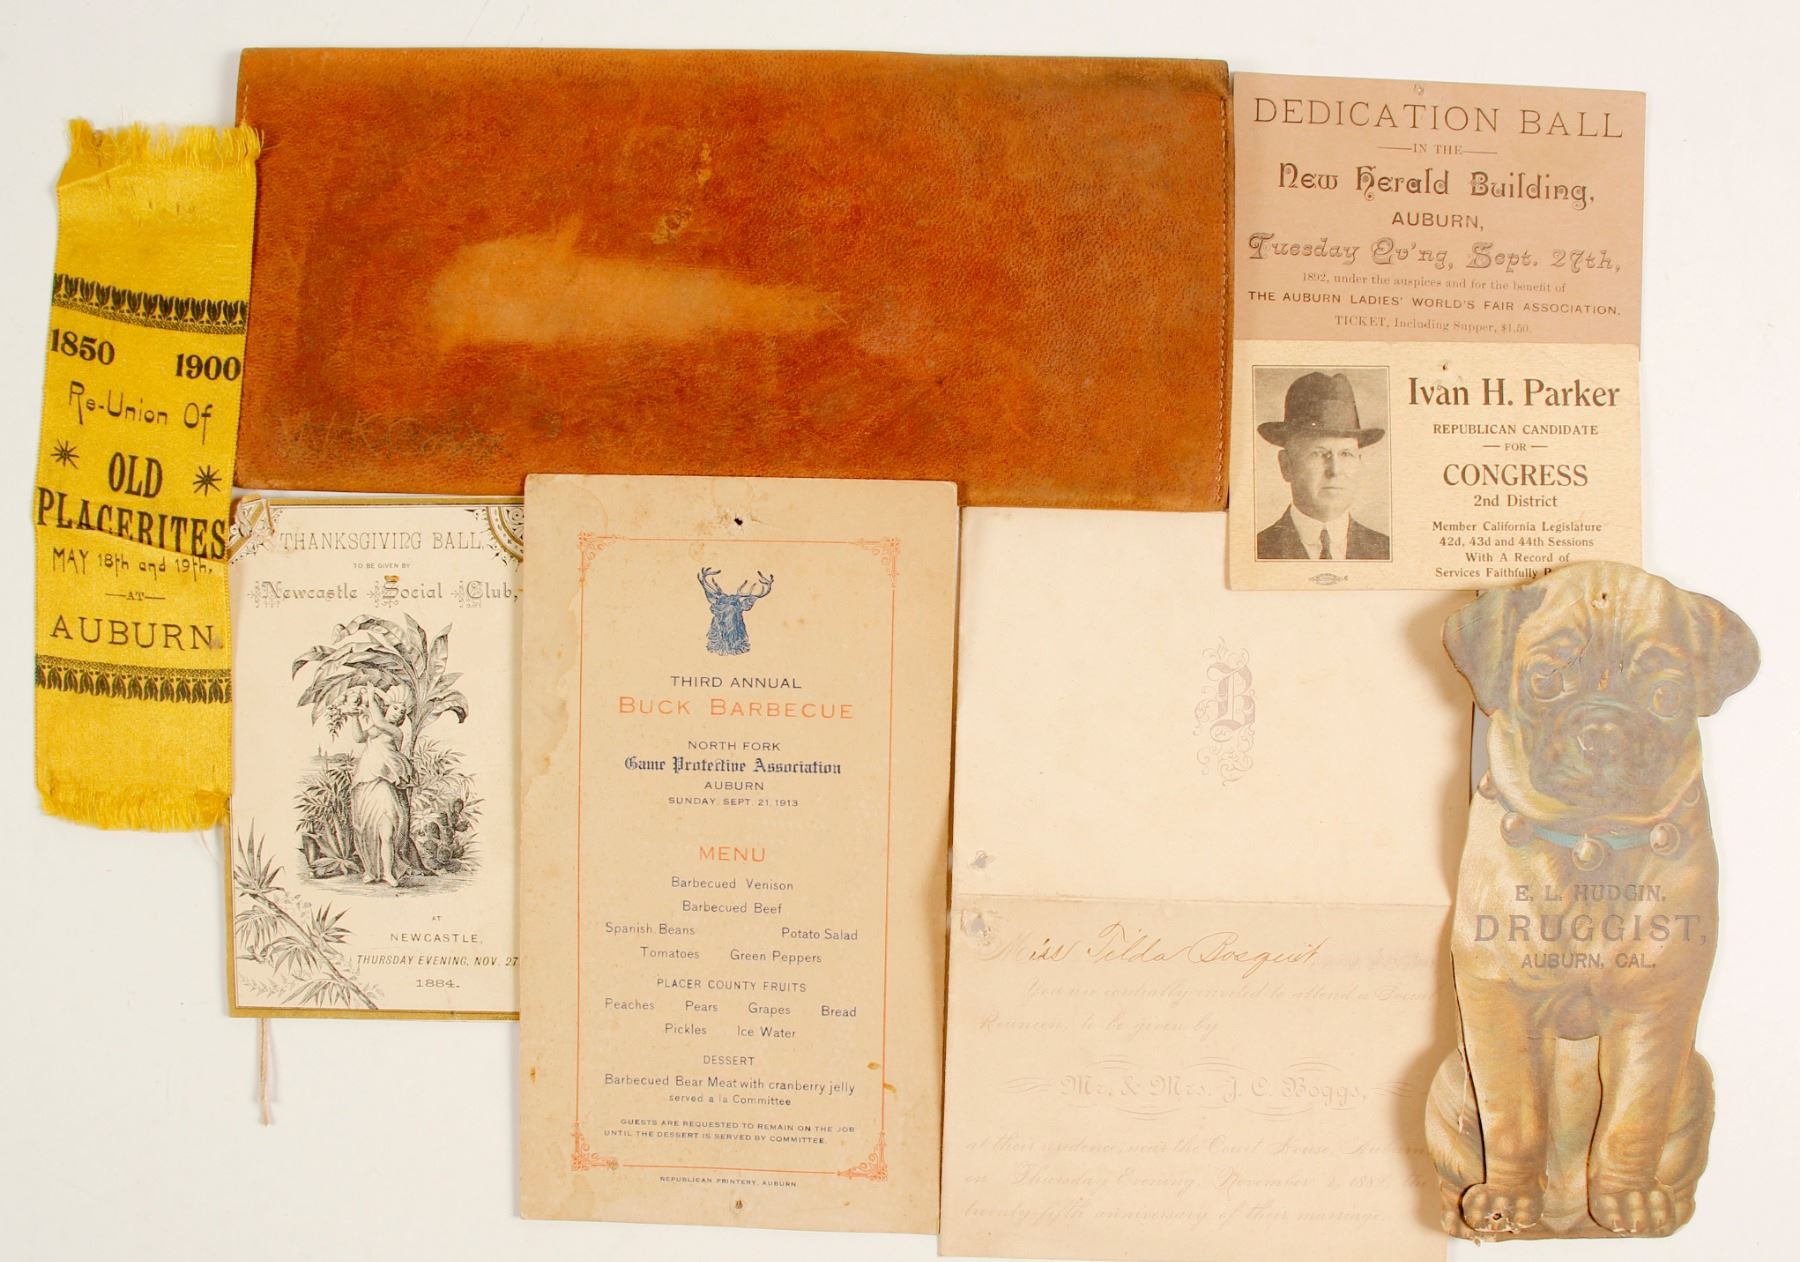 1850 1900
Re-Union Of
OLD
PLACERITES
MAY 18th and 19th,
AT
AUBURN.
THANKSGIVING BALL,
TO BE GIVEN BY
Newcastle Social Club,
AT
NEWCASTLE,
THURSDAY EVENING, NOV. 27
1884.
THIRD ANNUAL
BUCK BARBECUE
NORTH FORK
Game Protective Association
AUBURN
SUNDAY, SEPT. 21, 1913
MENU
Barbecued Venison
Barbecued Beef
Spanish Beans Potato Salad
Tomatoes Green Peppers
PLACER COUNTY FRUITS
Peaches Pears Grapes Bread
Pickles Ice Water
DESSERT
Barbecued Bear Meat with cranberry jelly
served a la Committee
GUESTS ARE REQUESTED TO REMAIN ON THE JOB
UNTIL THE DESSERT IS SERVED BY COMMITTEE.
REPUBLICAN PRINTERY, AUBURN
DEDICATION BALL
IN THE
New Herald Building,
AUBURN,
Tuesday Ev'ng, Sept. 27th,
1892, under the auspices and for the benefit of
THE AUBURN LADIES' WORLD'S FAIR ASSOCIATION.
TICKET, Including Supper, $1.50.
Ivan H. Parker
REPUBLICAN CANDIDATE
FOR
CONGRESS
2nd District
Member California Legislature
42d, 43d and 44th Sessions
With A Record of
Services Faithfully
B
Miss Tilda Bosquit
You are cordially invited to attend a Social
Reunion, to be given by
Mr. & Mrs. J. C. Boggs,
at their residence, near the Court House, Auburn,
on Thursday Evening, November 2, 1882, the
twenty-fifth anniversary of their marriage.
E. L. HUDGIN,
DRUGGIST,
AUBURN, CAL.